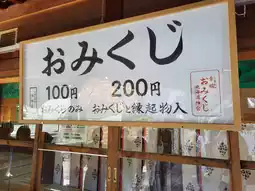 おみくじ
100円
200円
おみくじのみ
おみくじと縁起物入
おみくじ